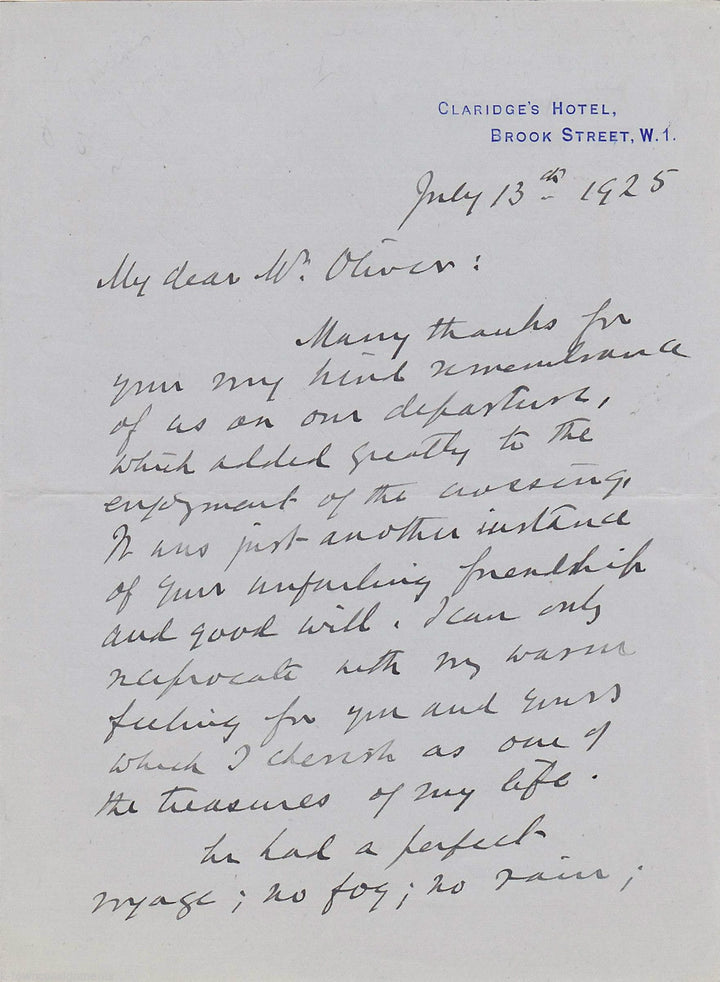 CLARIDGE'S HOTEL,
BROOK STREET, W.1.
July 13th 1925
My dear Mr. Oliver:
Many thanks for
your very kind remembrance
of us on our departure,
which added greatly to the
enjoyment of the crossing.
It was just another instance
of your unfailing friendship
and good will. I can only
reciprocate with my warm
feeling for you and yours
which I cherish as one of
the treasures of my life.
We had a perfect
voyage; no fog; no rain;